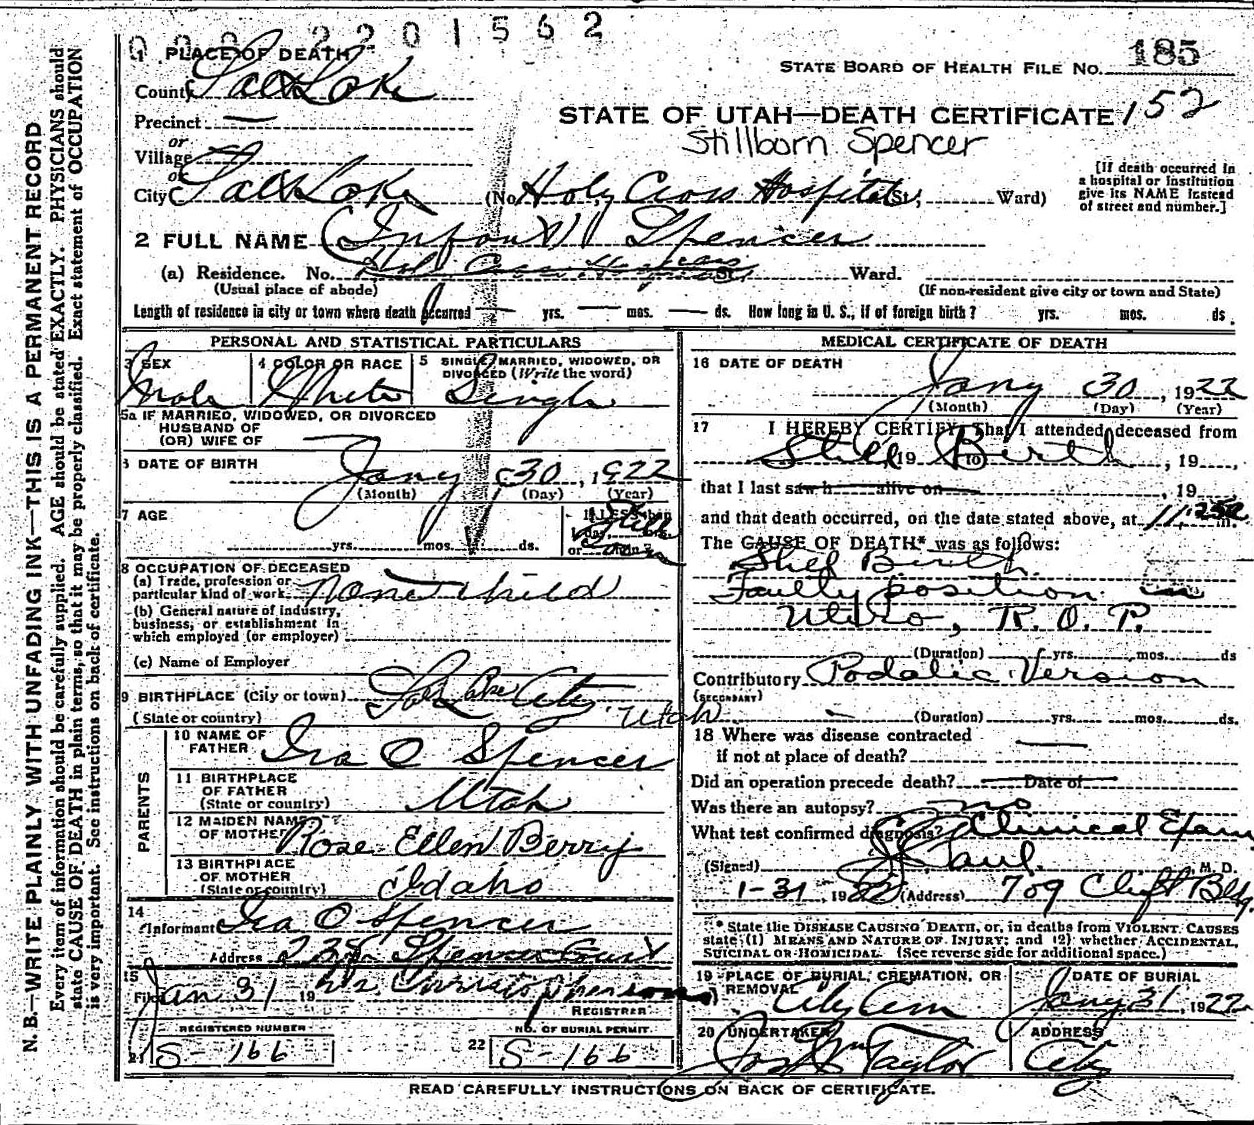 0 0 0 2 2 0 1 5 6 2
1 PLACE OF DEATH
STATE BOARD OF HEALTH FILE NO. 185
County Salt Lake
STATE OF UTAH—DEATH CERTIFICATE 152
Precinct —
Stillborn Spencer
or
Village
or
City Salt Lake (No. Holy Cross Hospital St; Ward)
[If death occurred in a hospital or institution give its NAME instead of street and number.]
2 FULL NAME (Infant) Spencer
(a) Residence. No. Holy Cross Hospital St. Ward.
(Usual place of abode) (If non-resident give city or town and State)
Length of residence in city or town where death occurred — yrs. — mos. — ds. How long in U. S., if of foreign birth? yrs. mos. ds.
PERSONAL AND STATISTICAL PARTICULARS
3 SEX Male
4 COLOR OR RACE White
5 SINGLE, MARRIED, WIDOWED, OR DIVORCED (Write the word) Single
5a IF MARRIED, WIDOWED, OR DIVORCED
HUSBAND OF
(OR) WIFE OF
6 DATE OF BIRTH Jany 30, 1922
(Month) (Day) (Year)
7 AGE
yrs. mos. ds.
If LESS than 1 day, Still
8 OCCUPATION OF DECEASED
(a) Trade, profession or
particular kind of work None child
(b) General nature of industry,
business, or establishment in
which employed (or employer)
(c) Name of Employer
9 BIRTHPLACE (City or town) Salt Lake City
(State or country) Utah
PARENTS
10 NAME OF FATHER Ira O Spencer
11 BIRTHPLACE OF FATHER (State or country) Utah
12 MAIDEN NAME OF MOTHER Rose Ellen Berry
13 BIRTHPLACE OF MOTHER (State or country) Idaho
14
Informant Ira O Spencer
Address Spencer Court
15
Filed Jan 31 19 Christophersons
REGISTRER
REGISTERED NUMBER
21 S-166
NO. OF BURIAL PERMIT
22 S-166
MEDICAL CERTIFICATE OF DEATH
16 DATE OF DEATH
Jany 30, 1922
(Month) (Day) (Year)
17 I HEREBY CERTIFY, That I attended deceased from
Still, 19 to Birth, 19
that I last saw h alive on , 19
and that death occurred, on the date stated above, at 11:25 m.
The CAUSE OF DEATH* was as follows:
Still Birth
Faulty position in
Utero, R.O.P.
(Duration) yrs. mos. ds
Contributory Podalic Version
(SECONDARY)
— (Duration) yrs. mos. ds.
18 Where was disease contracted
if not at place of death? —
Did an operation precede death? Date of
Was there an autopsy? no
What test confirmed diagnosis? Clinical Exam
(Signed) Paul M. D.
1-31, 1922 (Address) 709 Clift Bldg.
* State the DISEASE CAUSING DEATH, or, in deaths from VIOLENT CAUSES
state (1) MEANS AND NATURE OF INJURY; and (2) whether ACCIDENTAL,
SUICIDAL OR HOMICIDAL. (See reverse side for additional space.)
19 PLACE OF BURIAL, CREMATION, OR REMOVAL City Cem
DATE OF BURIAL Jany 31, 1922
20 UNDERTAKER Jos Wm Taylor
ADDRESS City
READ CAREFULLY INSTRUCTIONS ON BACK OF CERTIFICATE.
N. B.—WRITE PLAINLY WITH UNFADING INK—THIS IS A PERMANENT RECORD
Every item of information should be carefully supplied. AGE should be stated EXACTLY. PHYSICIANS should
state CAUSE OF DEATH in plain terms, so that it may be properly classified. Exact statement of OCCUPATION
is very important. See instructions on back of certificate.